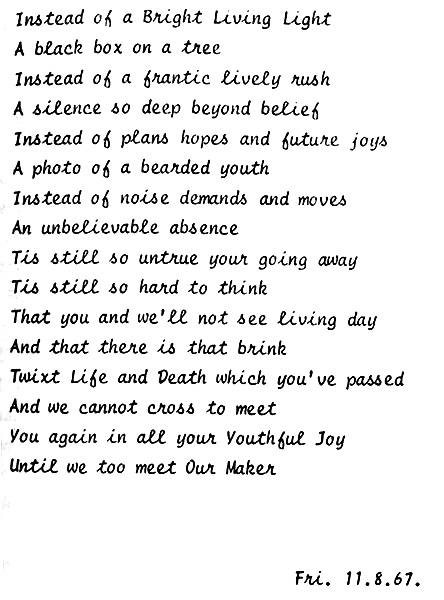 Instead of a Bright Living Light
A black box on a tree
Instead of a frantic lively rush
A silence so deep beyond belief
Instead of plans hopes and future joys
A photo of a bearded youth
Instead of noise demands and moves
An unbelievable absence
Tis still so untrue your going away
Tis still so hard to think
That you and we'll not see living day
And that there is that brink
Twixt Life and Death which you've passed
And we cannot cross to meet
You again in all your Youthful Joy
Until we too meet Our Maker
Fri. 11.8.67.